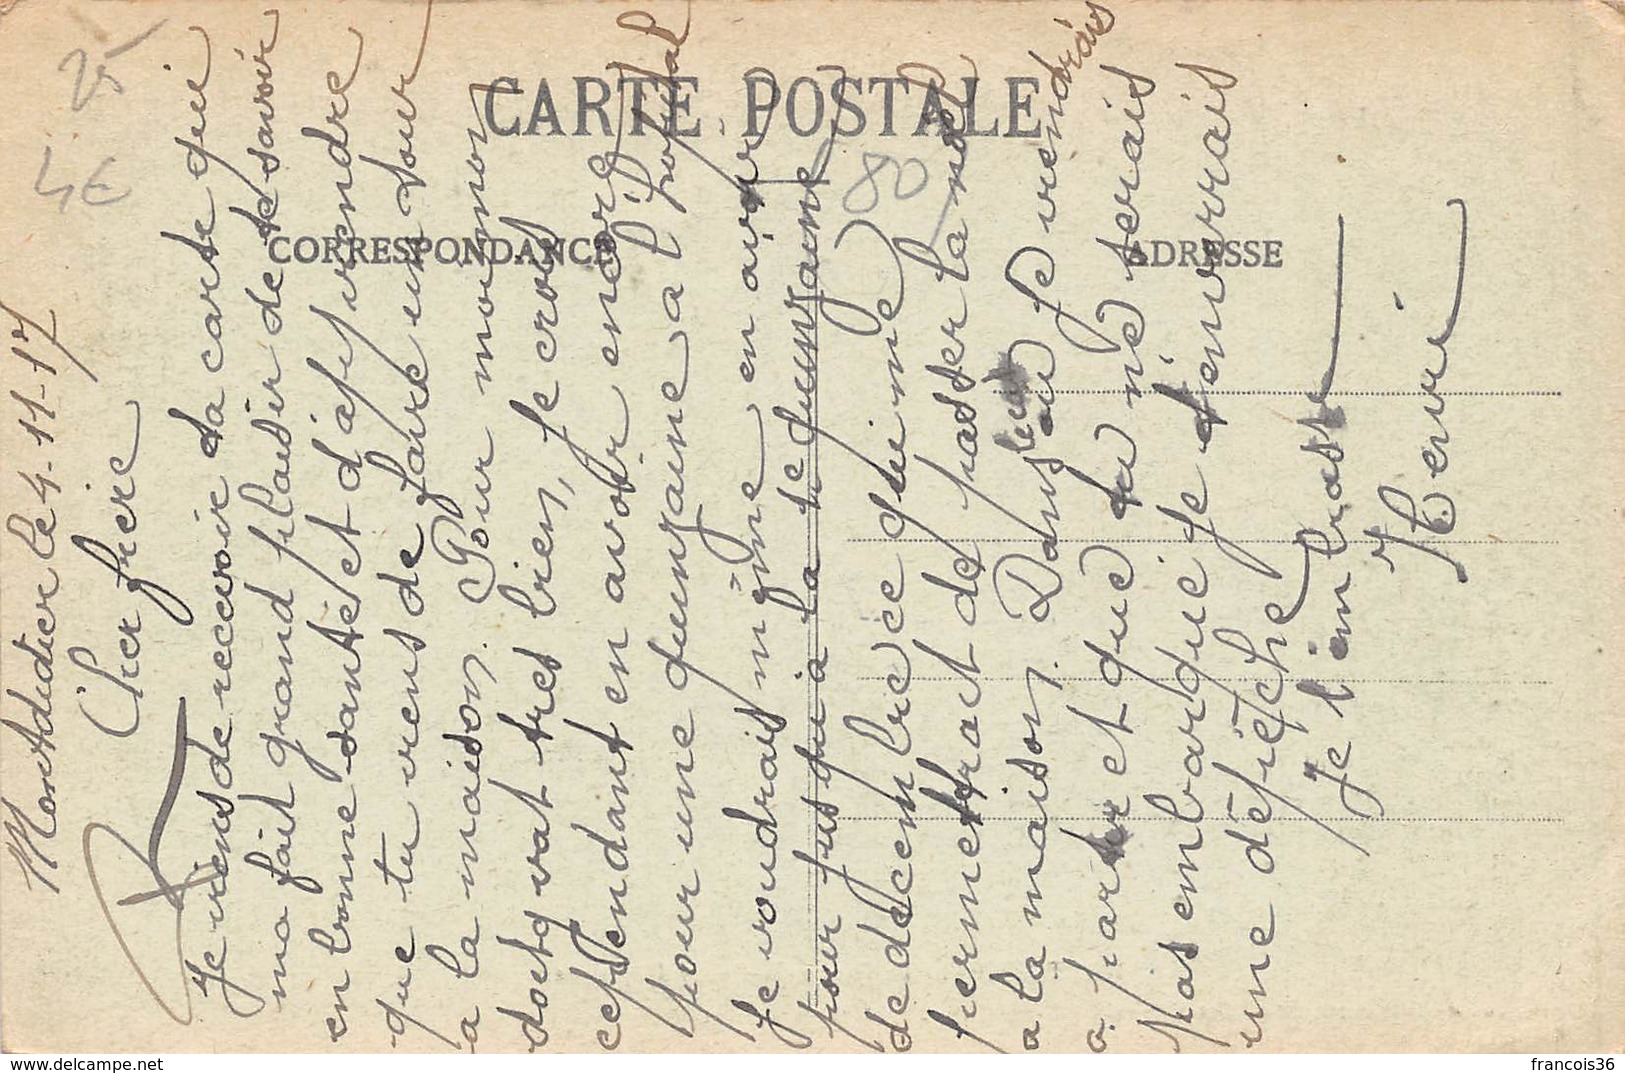 25
4€
80
CARTE POSTALE
CORRESPONDANCE
ADRESSE
Montdidier le 4-11-17
Cher frère
Je viens de recevoir ta carte qui
ma fait grand plaisir de te savoir
en bonne santé et d'aprendre
que tu viens de faire un tour
a la maison. Pour moi mon
doitg vat tres bien, je crois
cependant en avoir encore
pour une quinzaine a l'hopital
Je voudrais même en avoir
pour jusqu'à la 1e quinzaine
de decembre ce qui me
permettrait de passer la noel
a la maison. Dans le cas ou je viendrais
a partir et que tu ne serais
pas embarqué je t'enverrais
une dépèche
Je t'embrasse
Henri
www.delcampe.net
francois36